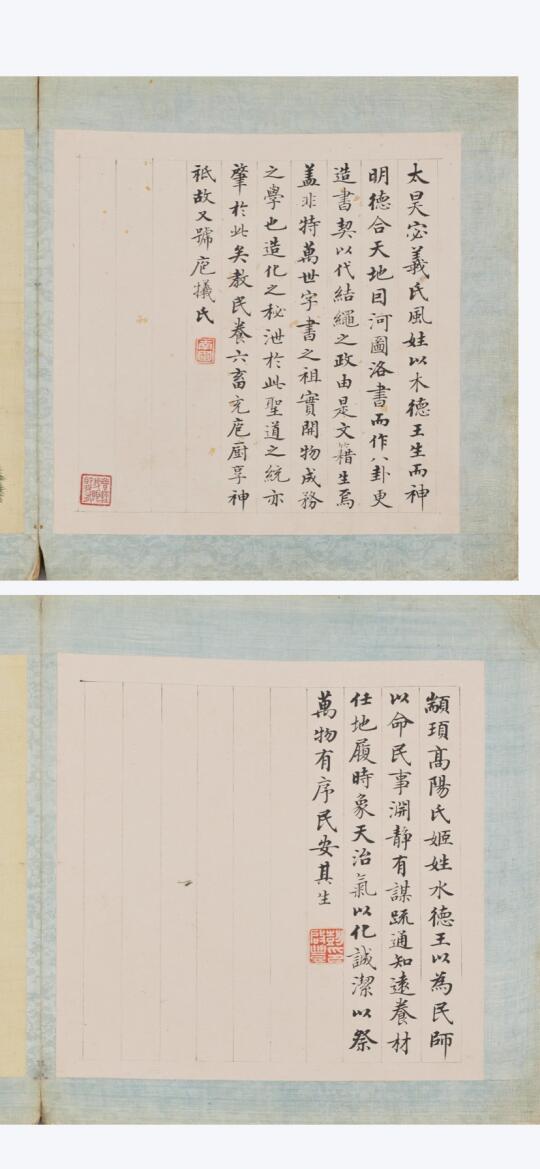 太昊宓羲氏風姓以木德王生而神
明德合天地因河圖洛書而作八卦更
造書契以代結繩之政由是文籍生焉
蓋非特萬世字書之祖實開物成務
之學也造化之秘泄於此聖道之統亦
肇於此矣教民養六畜充庖厨享神
祇故又號庖犧氏
顓頊高陽氏姬姓水德王以為民師
以命民事淵靜有謀疏通知遠養材
任地履時象天治氣以化誠潔以祭
萬物有序民安其生